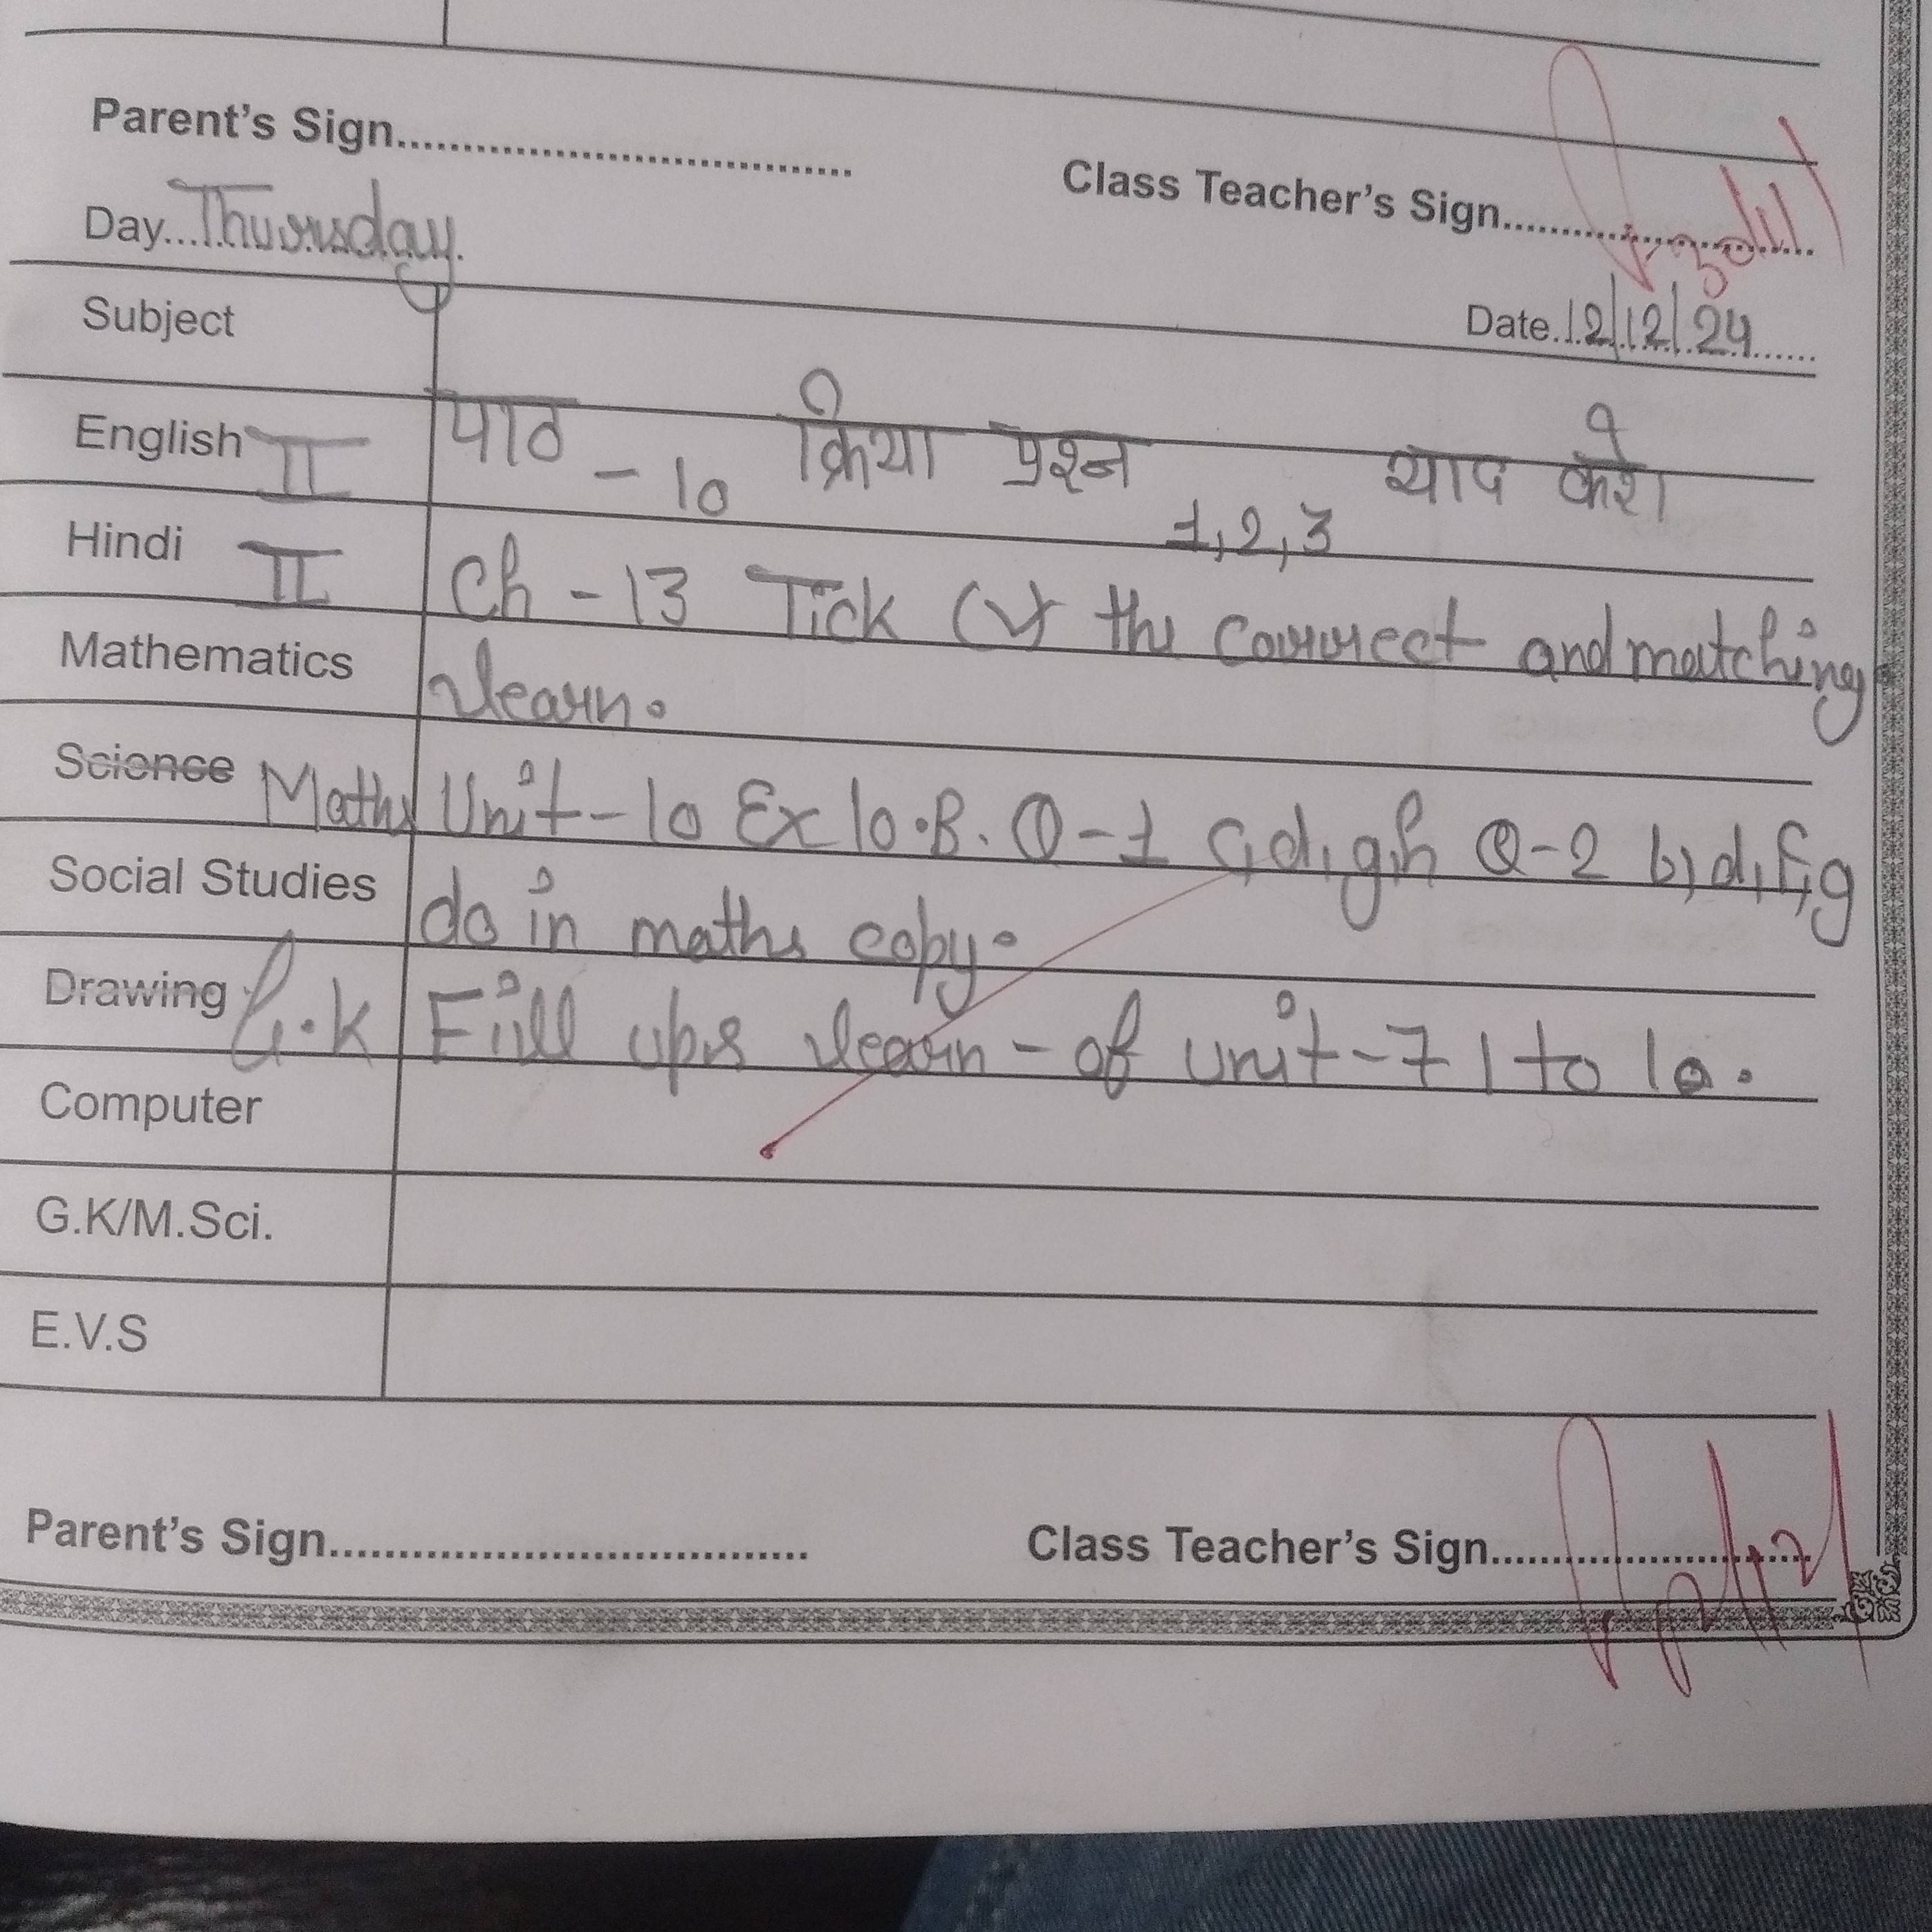 Parent's Sign.................................... Class Teacher's Sign........................
Day...Thursday. Date..12/12/24......
Subject
English II पाठ - 10 क्रिया प्रश्न 1,2,3 याद करो
Hindi II Ch - 13 Tick (✓) the correct and matching
Mathematics learn.
Science Maths Unit - 10 Ex 10.B. Q-1 c,d,g,h Q-2 b,d,f,g
Social Studies do in maths copy.
Drawing G.K Fiill ups learn - of unit - 7 1 to 10.
Computer
G.K/M.Sci.
E.V.S
Parent's Sign.................................... Class Teacher's Sign........................